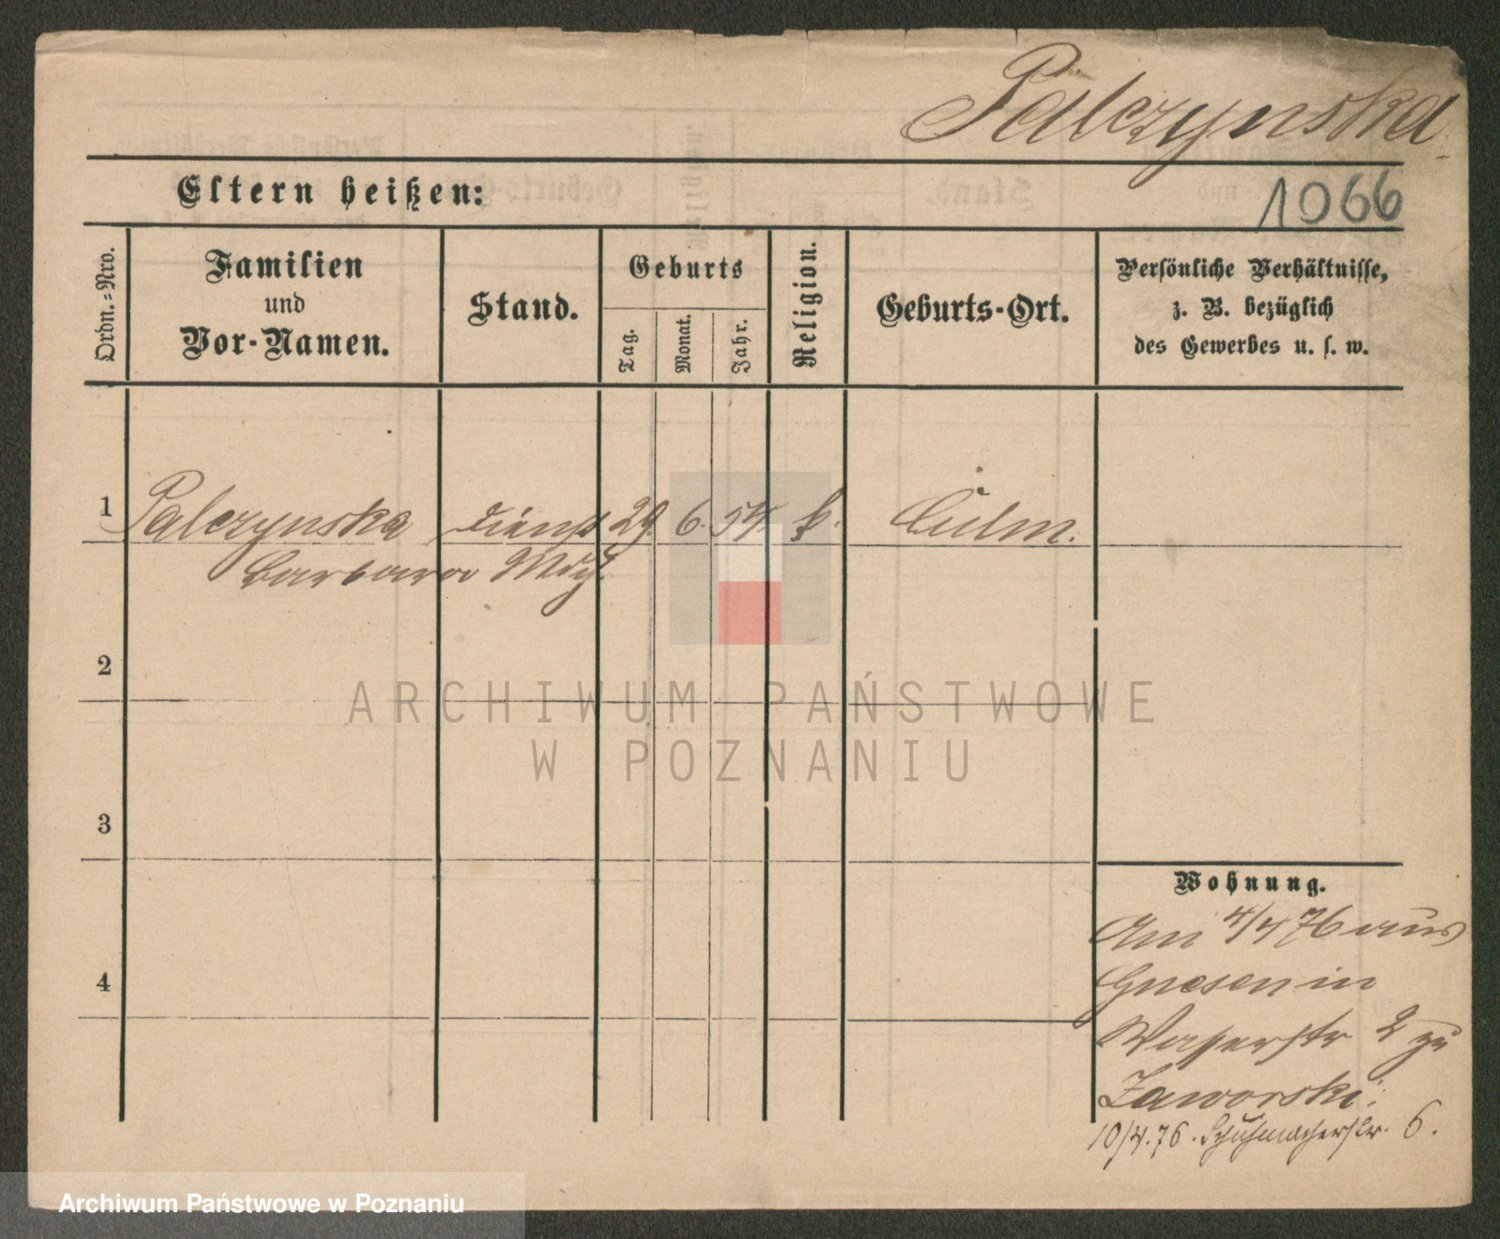 Palczynska
Eltern heißen:
1066
Ordn.=Nro.
Familien
und
Vor-Namen.
Stand.
Geburts
Tag.
Monat.
Jahr.
Religion.
Geburts-Ort.
Persönliche Verhältnisse,
z. B. bezüglich
des Gewerbes u. s. w.
1 Palczynska Dienst 29. 6. 54. k. Culm.
Barbara Mdch.
2
ARCHIWUM PAŃSTWOWE
W POZNANIU
3
Wohnung.
Am 4/4 76 aus
4
Gnesen in
Wasserstr 2 zu
Zaworski.
10/4.76. Schuhmacherstr. 6.
Archiwum Państwowe w Poznaniu